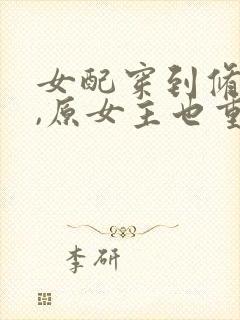 女配穿到修
,原女主也重
李研